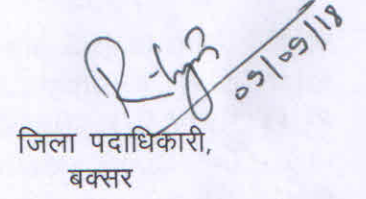 05/09/18
जिला पदाधिकारी,
बक्सर